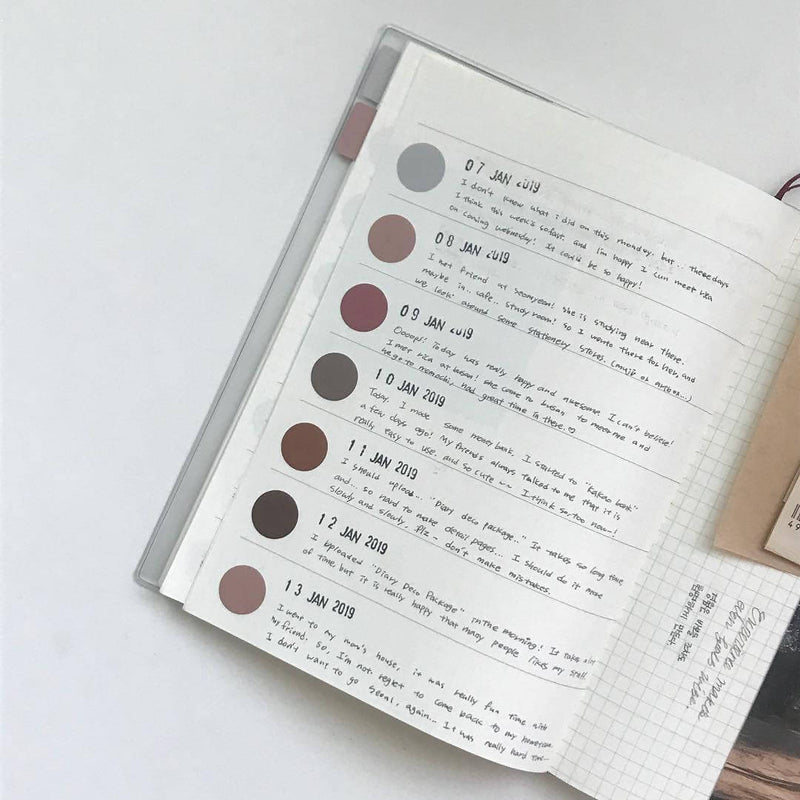 07 JAN 2019
I don't know what i did on this monday. but.. thesedays
I think this week's so fast. and i'm happy I can meet
on coming wednesday! It could be so happy!
08 JAN 2019
I met friend at Seomyeon! She is studying near there.
maybe in.. cafe. study room! so I wento there for her, and
we look around some stationery stores. (muji or artbox...)
09 JAN 2019
Oooops! Today was really happy and awesome I can't believe!
I met at busan! she came to busan to meet me and
had great time in there.
10 JAN 2019
Today, I made some money bank. I started to "Kakao bank"
a few days ago! My friends always talked to me that it is
really easy to use. and so cute ~~ I think so, too now~!
11 JAN 2019
I should upload.. "Diary deco package.." It takes so long time,
and... so hard to make detail pages... I should do it more
slowly and slowly. Plz - don't make mistakes.
12 JAN 2019
I uploaded "Diary Deco Package" in the morning! It takes a lot
of time but it is really happy that many people likes my stuff
13 JAN 2019
I went to my mom's house, it was really fun time with
my friend. So, I'm not reglet to come back to my hometown
I don't want to go Seoul, again... It was really hard time..
Experience makes
even fools wise.
경험은 바보도 현명하게 만든다.